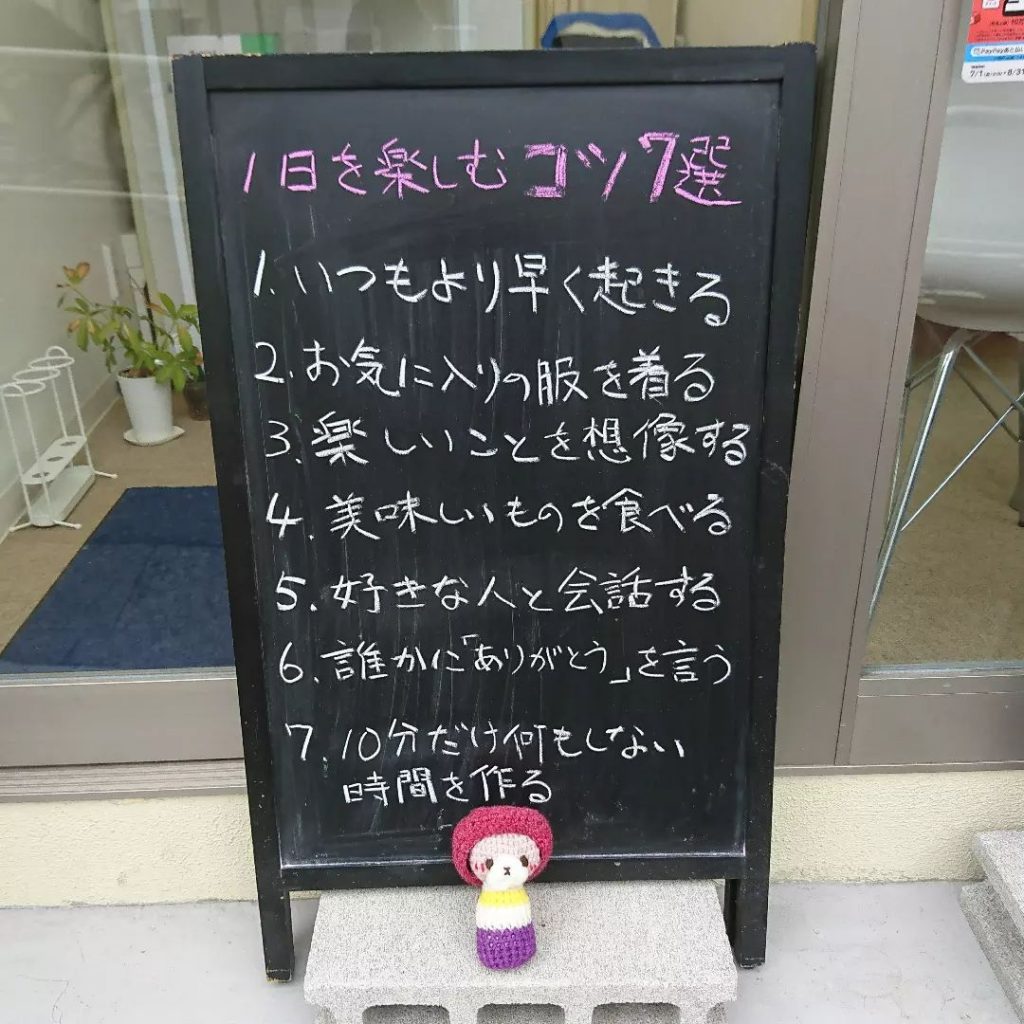 1日を楽しむコツ7選
1.いつもより早く起きる
2.お気に入りの服を着る
3.楽しいことを想像する
4.美味しいものを食べる
5.好きな人と会話する
6.誰かに「ありがとう」を言う
7.10分だけ何もしない
時間を作る
PayPay